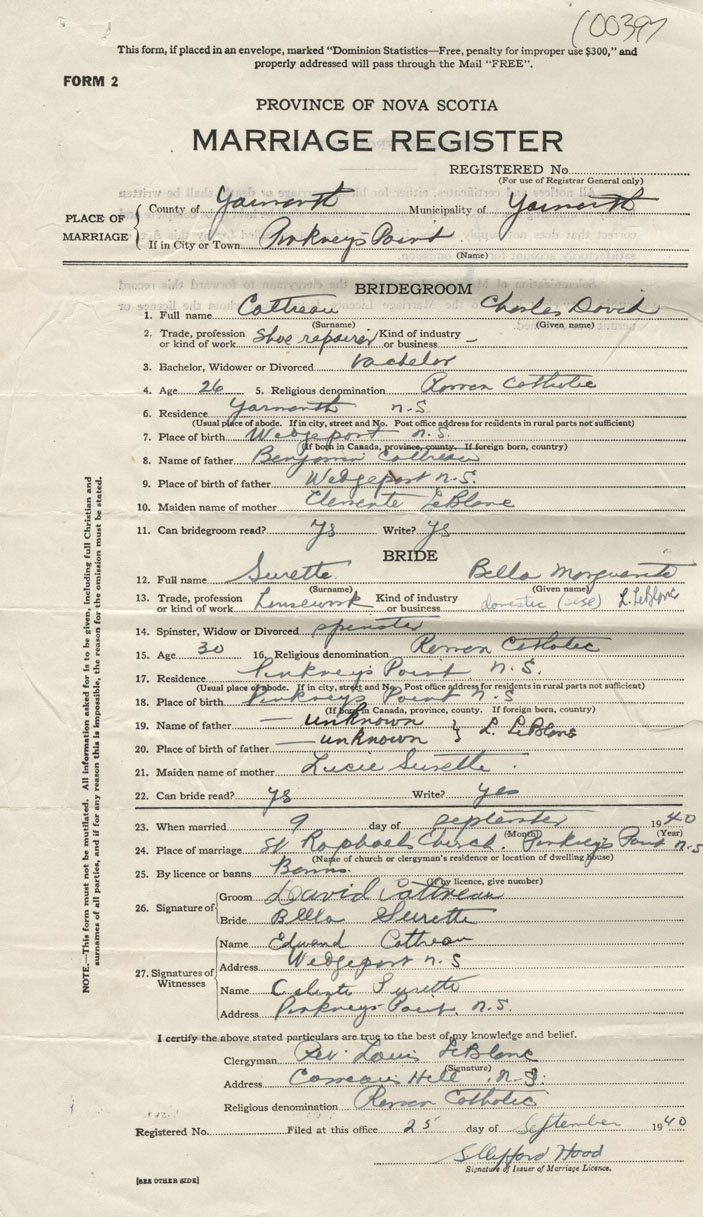 100397
This form, if placed in an envelope, marked "Dominion Statistics—Free, penalty for improper use $300," and
properly addressed will pass through the Mail "FREE".
FORM 2
PROVINCE OF NOVA SCOTIA
MARRIAGE REGISTER
REGISTERED No.
(For use of Registrar General only)
PLACE OF MARRIAGE
County of Yarmouth Municipality of Yarmouth
If in City or Town Pinkneys Point
(Name)
BRIDEGROOM
1. Full name Cottreau Charles David
(Surname) (Given name)
2. Trade, profession or kind of work Shoe repairer Kind of industry or business —
3. Bachelor, Widower or Divorced bachelor
4. Age 26 5. Religious denomination Roman Catholic
6. Residence Yarmouth N.S.
(Usual place of abode. If in city, street and No. Post office address for residents in rural parts not sufficient)
7. Place of birth Wedgeport N.S.
(If born in Canada, province, county. If foreign born, country)
8. Name of father Benjamin Cottreau
9. Place of birth of father Wedgeport N.S.
10. Maiden name of mother LeBlanc
11. Can bridegroom read? Yes Write? Yes
BRIDE
12. Full name Surette Bella Marguerite
(Surname) (Given name)
13. Trade, profession or kind of work housework Kind of industry or business domestic L. LeBlanc
14. Spinster, Widow or Divorced spinster
15. Age 30 16. Religious denomination Roman Catholic
17. Residence Pinkneys Point, N.S.
(Usual place of abode. If in city, street and No. Post office address for residents in rural parts not sufficient)
18. Place of birth Pinkneys Point N.S
(If born in Canada, province, county. If foreign born, country)
19. Name of father — unknown } L. LeBlanc
20. Place of birth of father — unknown
21. Maiden name of mother Lucie Surette
22. Can bride read? Yes Write? Yes
23. When married 9 day of September 1940
(Month) (Year)
24. Place of marriage St Raphaels Church. Pinkneys Point N.S
(Name of church or clergyman's residence or location of dwelling house)
25. By licence or banns Banns
(If by licence, give number)
26. Signature of
Groom David Cottreau
Bride Bella Surette
27. Signatures of Witnesses
Name Edward Cottreau
Address Wedgeport N.S
Name Celeste Surette
Address Pinkneys Point, N.S.
I certify the above stated particulars are true to the best of my knowledge and belief.
Clergyman Rev. Louis LeBlanc
(Signature)
Address Comeau's Hill N.S.
Religious denomination Roman Catholic
Registered No. Filed at this office 25 day of September 1940
Hood
Signature of Issuer of Marriage Licence.
[SEE OTHER SIDE]
NOTE.—This form must not be mutilated. All information asked for is to be given, including full Christian and
surnames of all parties, and if for any reason this is impossible, the reason for the omission must be stated.